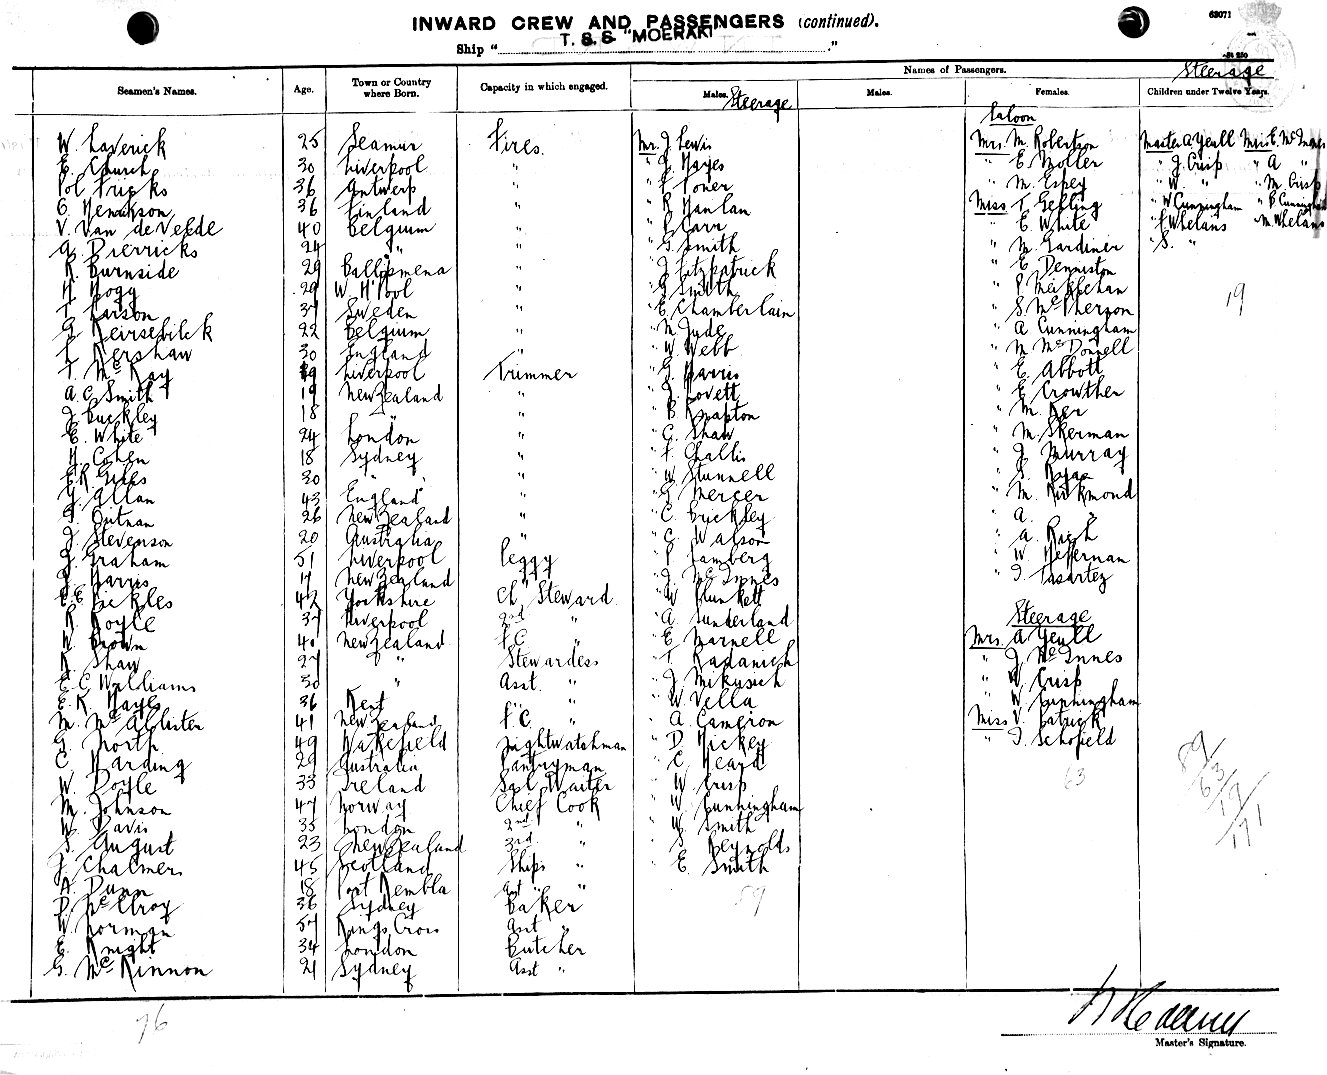 INWARD CREW AND PASSENGERS (continued).
63071
Ship "T. S. S "MOERAKI"."
Names of Passengers.
Seamen's Names. Age. Town or Country where Born. Capacity in which engaged. Males. Steerage Males. Females. Steerage Children under Twelve Years.
Saloon
W. Laverick 25 Seamur Fires. Mr. J. Lewis Mrs. M. Robertson Master A Yeull Miss E. McInnes
E. Church 30 Liverpool " " J. Hayes " E. Moller " J. Crisp " A "
Pol Fricks 36 Antwerp " " F. Toner " M. Espey " W. " " M. Crisp
36 Finland " " R. Hanlan Miss T. Gelling " W Cunningham " B Cunningham
V. Van de Veede 40 Belgium " " P. Carr " E. White " F Whelans " M. Whelans
G. Dierricks 24 " " " G. Smith " M. Gardiner " S. "
R. Burnside 29 Ballymena " " J. Fitzpatrick " E. Denniston
H. Hogg 29 W. H'Pool " " G. Smith " P. Meiklehan
T. Larson 37 Sweden " " E. Chamberlain " S. McPherson 19
G. Keirsebilck 22 Belgium " " N. Jude " A Cunningham
T. Kershaw 30 England " " W. Webb " M. McDonnell
T. McKay 19 Liverpool Trimmer " G. Harris " E. Abbott
A. C. Smith 19 New Zealand " " J. Lovett " E. Crowther
J. Buckley 18 " " " B. Knapton " M. Ker
E. White 24 London " " C. Shaw " M. Skerman
H. Cohen 18 Sydney " " F. Challis " J. Murray
E. R. Giles 30 " " " W. Stunnell
G. Allan 43 England " " G. Mercer " M. Richmond
26 New Zealand " " C. Buckley " A. "
J. Stevenson 20 Australia " " C. Watson
J. Graham 51 Liverpool Peggy " P. Lamberg " W. Heffernan
J. Harris 17 New Zealand " " J. McInnes
E. E. Bickles 42 Yorkshire Ch. Steward. " W. Plunkett
R. Royle 37 Liverpool 2nd " " A. Sunderland Steerage
W. Brown 40 New Zealand F.C. " " E. Marnell Mrs. A Yeull
R. Shaw 27 " Stewardess " T. Radanich " J. McInnes
E. C. Williams 30 " Asst. " " J. Mikusich " W. Crisp
E. R. Hayes 36 Kent " " " W. Vella " W. Cunningham
M. McAllister 41 New Zealand F.C. " " A. Cameron Miss V. Patrick
G. North 49 Wakefield Nightwatchman " D. Hickey " I. Schofield
C. Harding 29 Australia Pantryman " C. Heard
W. Doyle 33 Ireland Sal. Waiter " W. Crisp 63
M. Johnson 47 Norway Chief Cook " W. Cunningham 89/63/19/171
W. Davis 35 London 2nd " " W. Smith
S. August 23 New Zealand 3rd " " S. Reynolds
J. Chalmers 45 Scotland Ships " " E. Smith
A. Dunn 18 Port Kembla Asst " "
D. McElroy 36 Sydney Baker
W. Norman 57 Kings Cross Asst "
E. Knight 34 London Butcher
G. McKinnon 21 Sydney Asst "
76
Master's Signature.